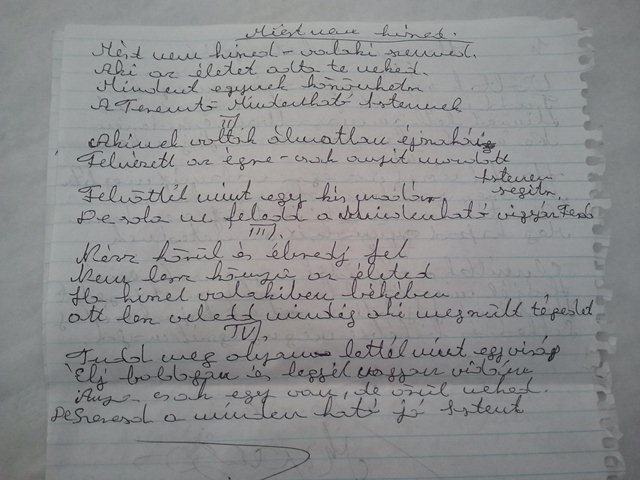 Miért nem hiszed.
Mért nem hiszed - valaki szenved.
Aki az életet adta te neked.
Mindent egynek köszönhetsz
A Teremtö Mindenható Istennek
II
Akinek voltak álmatlan éjszakái
Felnézett az égre - csak annyit mondott
Istenem segits.
Felnöttél mint egy kis madár
De soha ne feledd a Mindenható vigyáz Terád
III).
Nézz körül és ébredj fel
Nem lesz könnyü az életed
Ha hiszel valakiben békében
ott lesz veled mindég aki megszült téged
IV).
Tudd meg olyan lettél mint egy virág
Élj boldogan és legyél nagyon vidám
Anya csak egy van, de örül neked.
De Szeresd a minden ható jó Istent